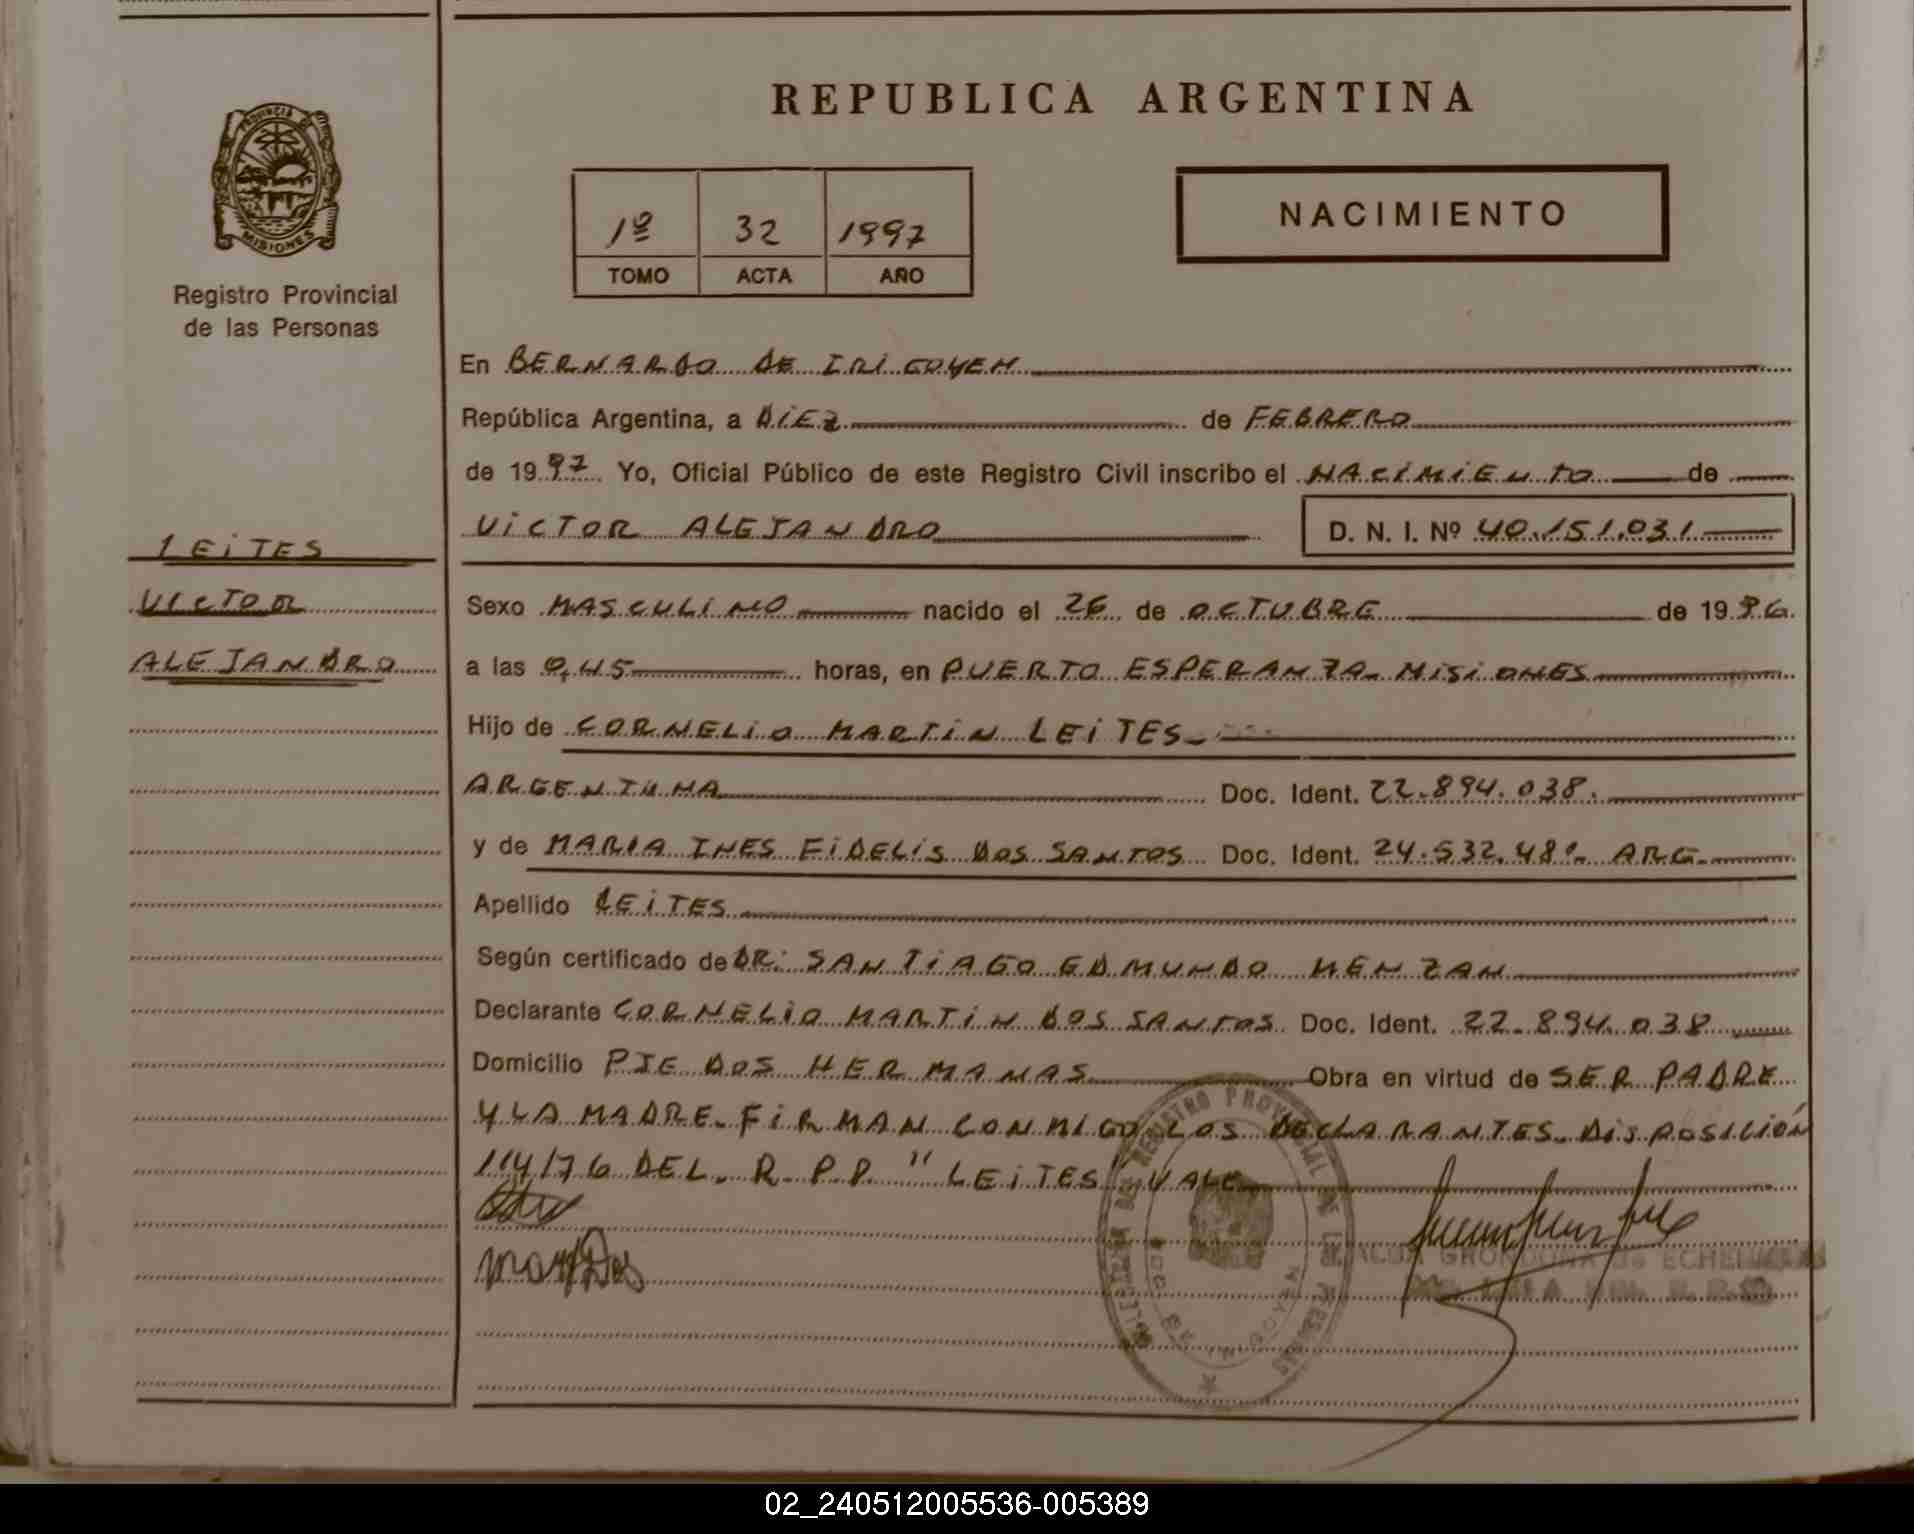 PROVINCIA DE
MISIONES
Registro Provincial
de las Personas
LEITES
VICTOR
ALEJANDRO
REPUBLICA ARGENTINA
1º 32 1997
TOMO ACTA AÑO
NACIMIENTO
En BERNARDO DE IRIGOYEN
República Argentina, a DIEZ de FEBRERO
de 1997. Yo, Oficial Público de este Registro Civil inscribo el NACIMIENTO de
VICTOR ALEJANDRO D. N. I. Nº 40.151.031
Sexo MASCULINO nacido el 26 de OCTUBRE de 1996.
a las 0,45 horas, en PUERTO ESPERANZA - MISIONES
Hijo de CORNELIO MARTIN LEITES
ARGENTINA Doc. Ident. 22.894.038.
y de MARIA INES FIDELIS DOS SANTOS Doc. Ident. 24.532.480. ARG.
Apellido LEITES
Según certificado de DR: SANTIAGO EDMUNDO HENZAN
Declarante CORNELIO MARTIN DOS SANTOS Doc. Ident. 22.894.038
Domicilio PJE DOS HERMANAS Obra en virtud de SER PADRE
Y LA MADRE. FIRMAN CONMIGO LOS DECLARANTES. DISPOSICIÓN
114/76 DEL. R. P. P. "LEITES" VALE
REGISTRO PROVINCIAL DE LAS PERSONAS
02_240512005536-005389